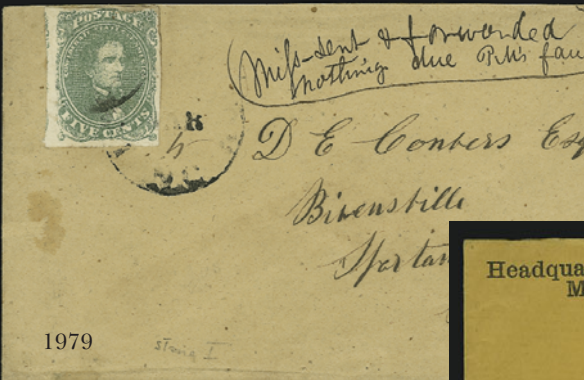 POSTAGE
FIVE CENTS
Miss-sent & forwarded
nothing due P.M's fau
D E Convers Esq
Bivensville
Spartan
stone I
1979
Headqua
M